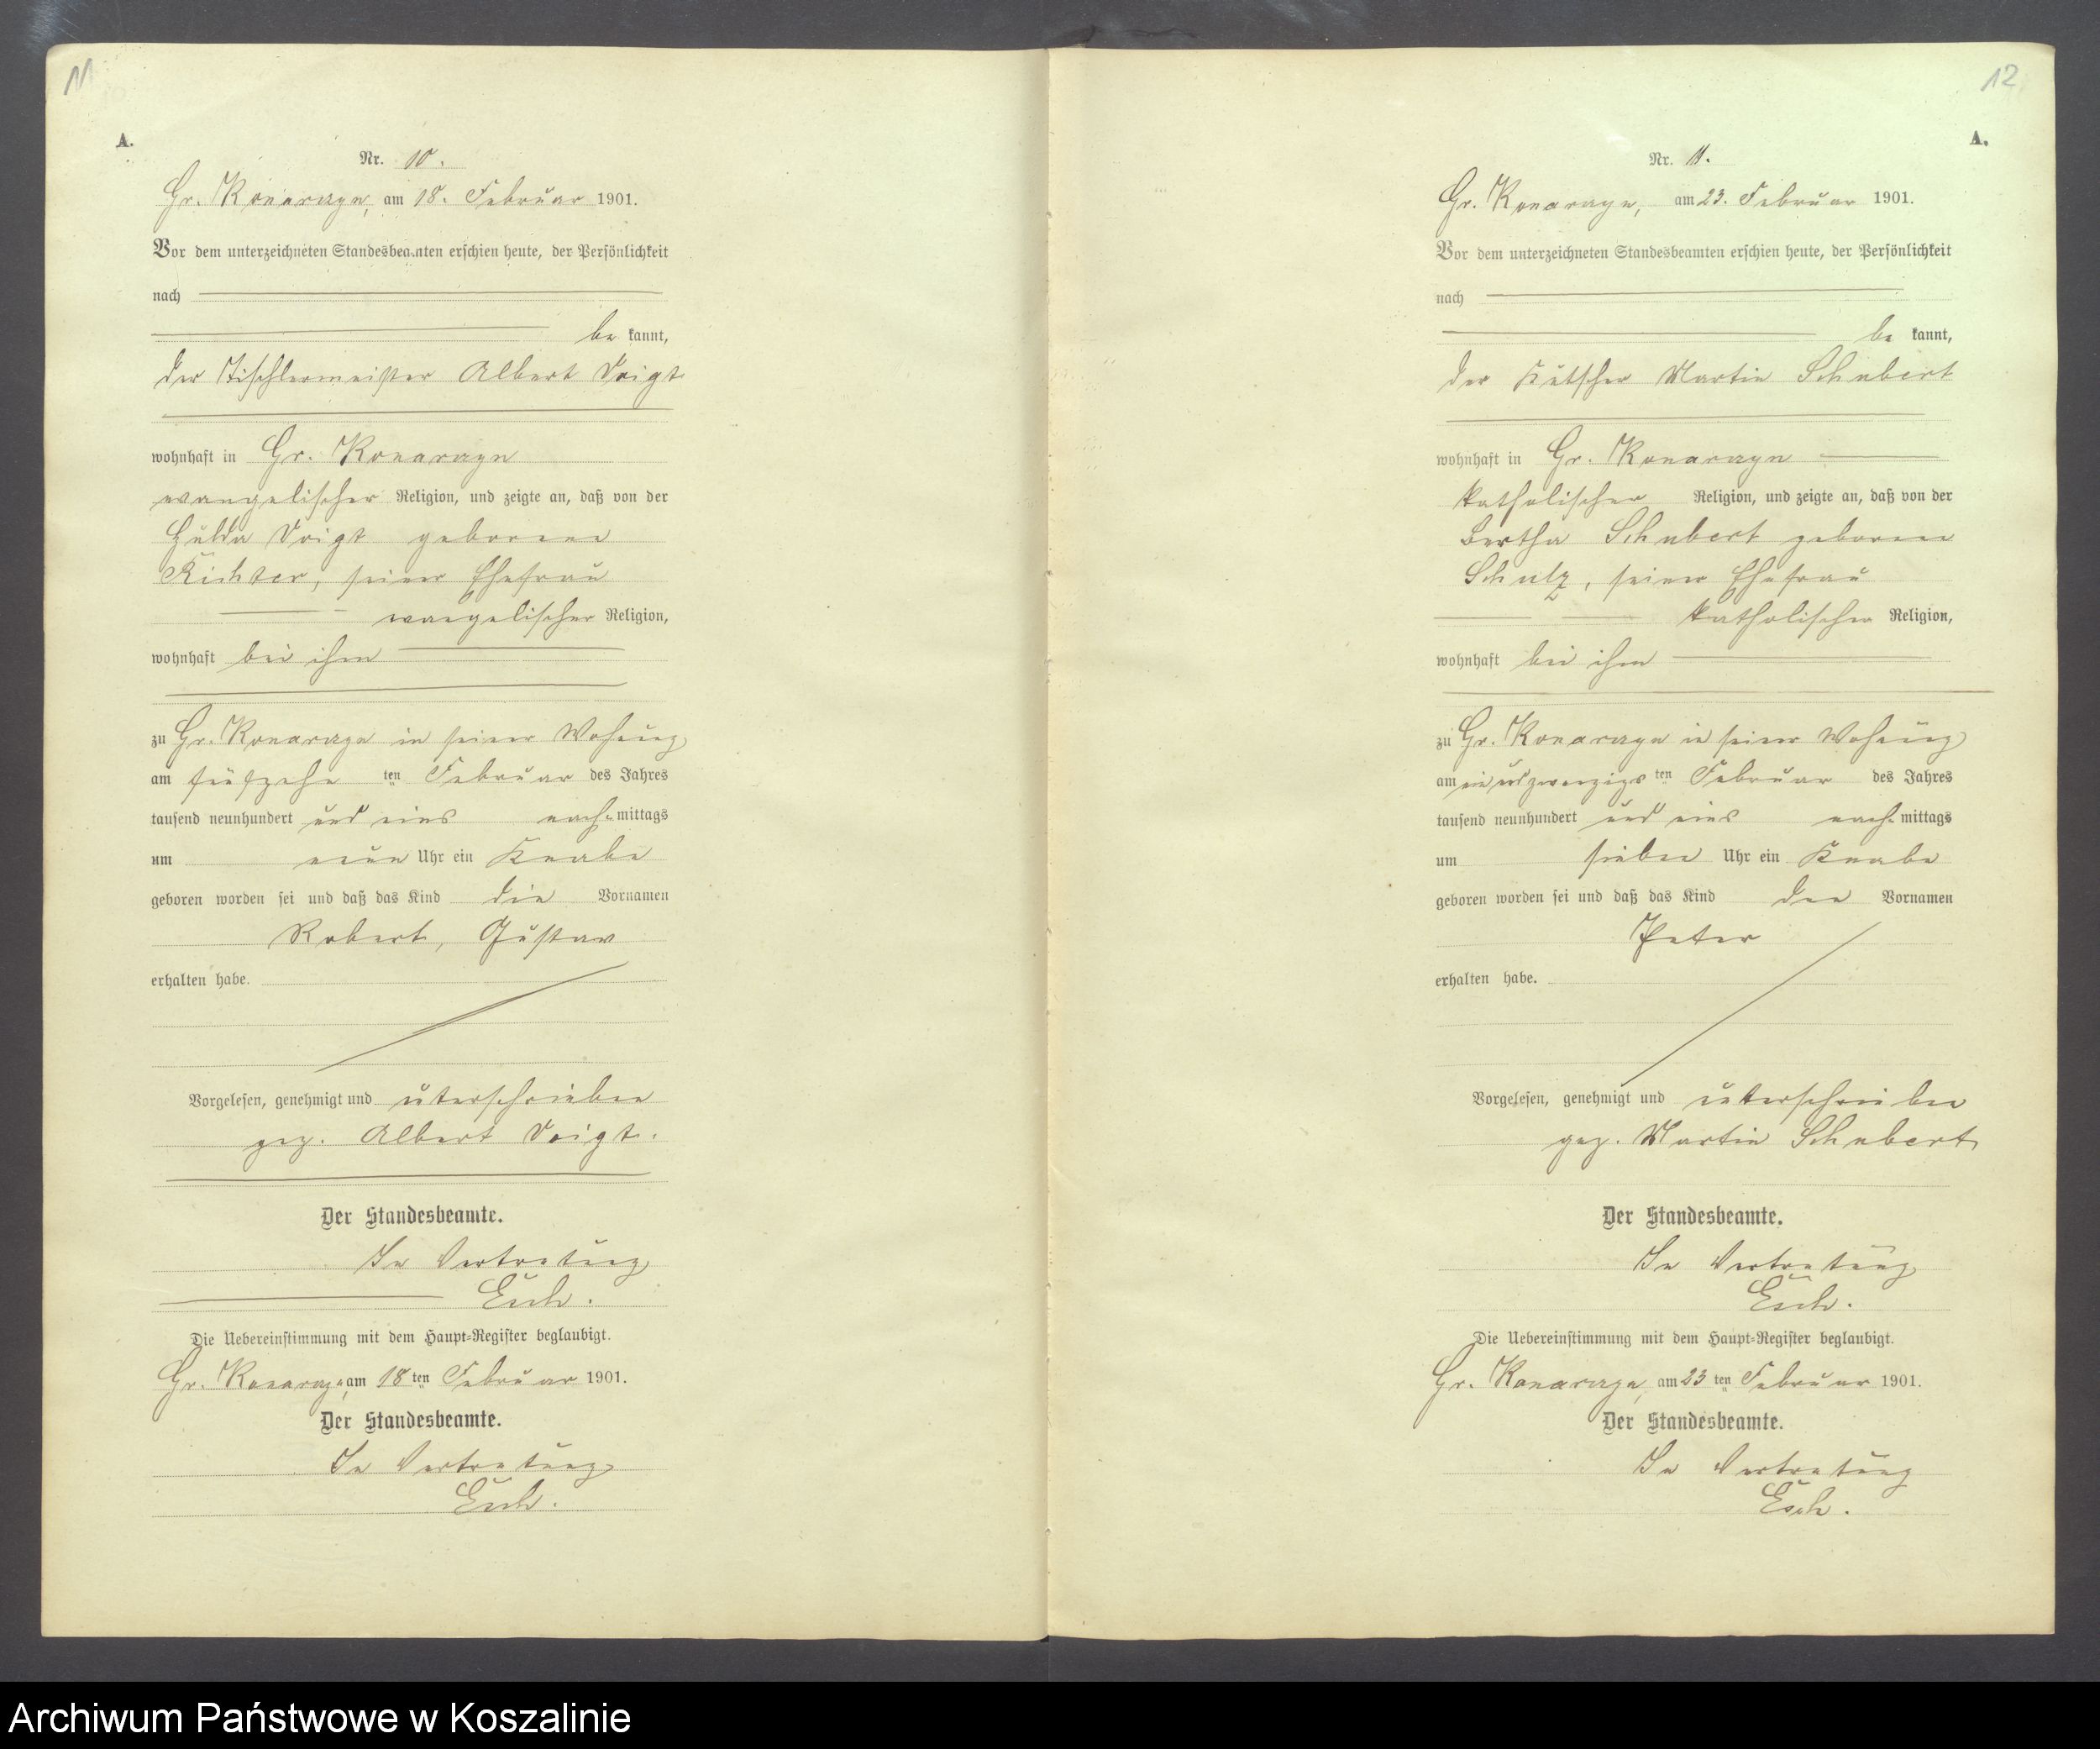 11
A.
Nr. 10.
Gr. Konarzyn, am 18. Februar 1901.
Vor dem unterzeichneten Standesbeamten erschien heute, der Persönlichkeit
nach
be kannt,
der Tischlermeister Albert Voigt
wohnhaft in Gr. Konarzyn
evangelischer Religion, und zeigte an, daß von der
Hulda Voigt geborene
Richter, seiner Ehefrau
evangelischer Religion,
wohnhaft bei ihm
zu Gr. Konarzyn in seiner Wohnung
am fünfzehn ten Februar des Jahres
tausend neunhundert und eins nach mittags
um neun Uhr ein Knabe
geboren worden sei und daß das Kind die Vornamen
Robert, Gustav
erhalten habe.
Vorgelesen, genehmigt und unterschrieben
gez. Albert Voigt.
Der Standesbeamte.
In Vertretung
Esch.
Die Uebereinstimmung mit dem Haupt=Register beglaubigt.
Gr. Konarzyn, am 18 ten Februar 1901.
Der Standesbeamte.
In Vertretung
Esch.
12
A.
Nr. 11.
Gr. Konarzyn, am 23. Februar 1901.
Vor dem unterzeichneten Standesbeamten erschien heute, der Persönlichkeit
nach
be kannt,
der Kutscher Martin Schubert
wohnhaft in Gr. Konarzyn
katholischer Religion, und zeigte an, daß von der
Bertha Schubert geborene
Schulz, seiner Ehefrau
katholischer Religion,
wohnhaft bei ihm
zu Gr. Konarzyn in seiner Wohnung
am einundzwanzigs ten Februar des Jahres
tausend neunhundert und eins nach mittags
um sieben Uhr ein Knabe
geboren worden sei und daß das Kind den Vornamen
Peter
erhalten habe.
Vorgelesen, genehmigt und unterschrieben
gez. Martin Schubert
Der Standesbeamte.
In Vertretung
Esch.
Die Uebereinstimmung mit dem Haupt=Register beglaubigt.
Gr. Konarzyn, am 23 ten Februar 1901.
Der Standesbeamte.
In Vertretung
Esch.
Archiwum Państwowe w Koszalinie